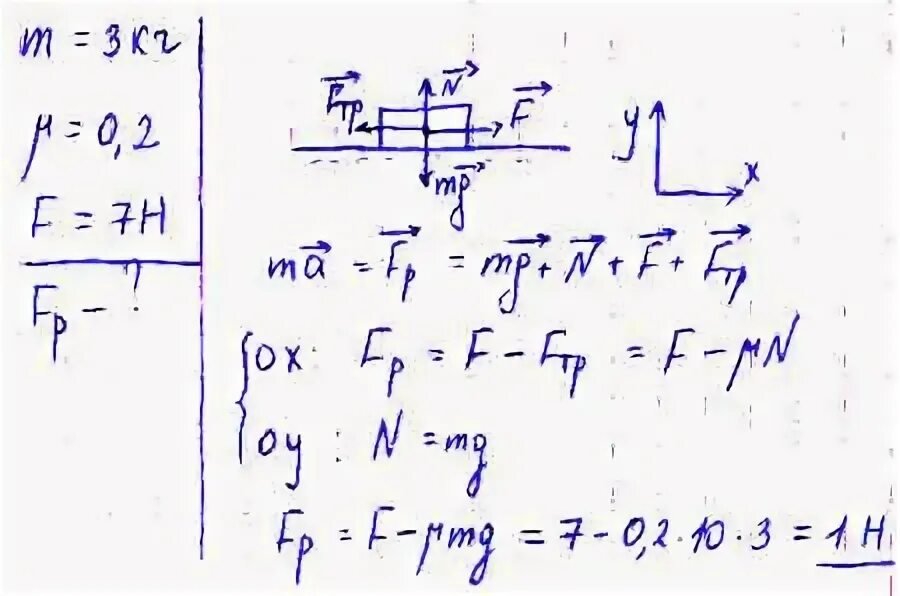 m = 3кг
μ = 0,2
F = 7Н
Fр - ?
Fтр N F
mg
y
x
ma = Fр = mg + N + F + Fтр
ox: Fр = F - Fтр = F - μN
oy : N = mg
Fр = F - μmg = 7 - 0,2 · 10 · 3 = 1 Н